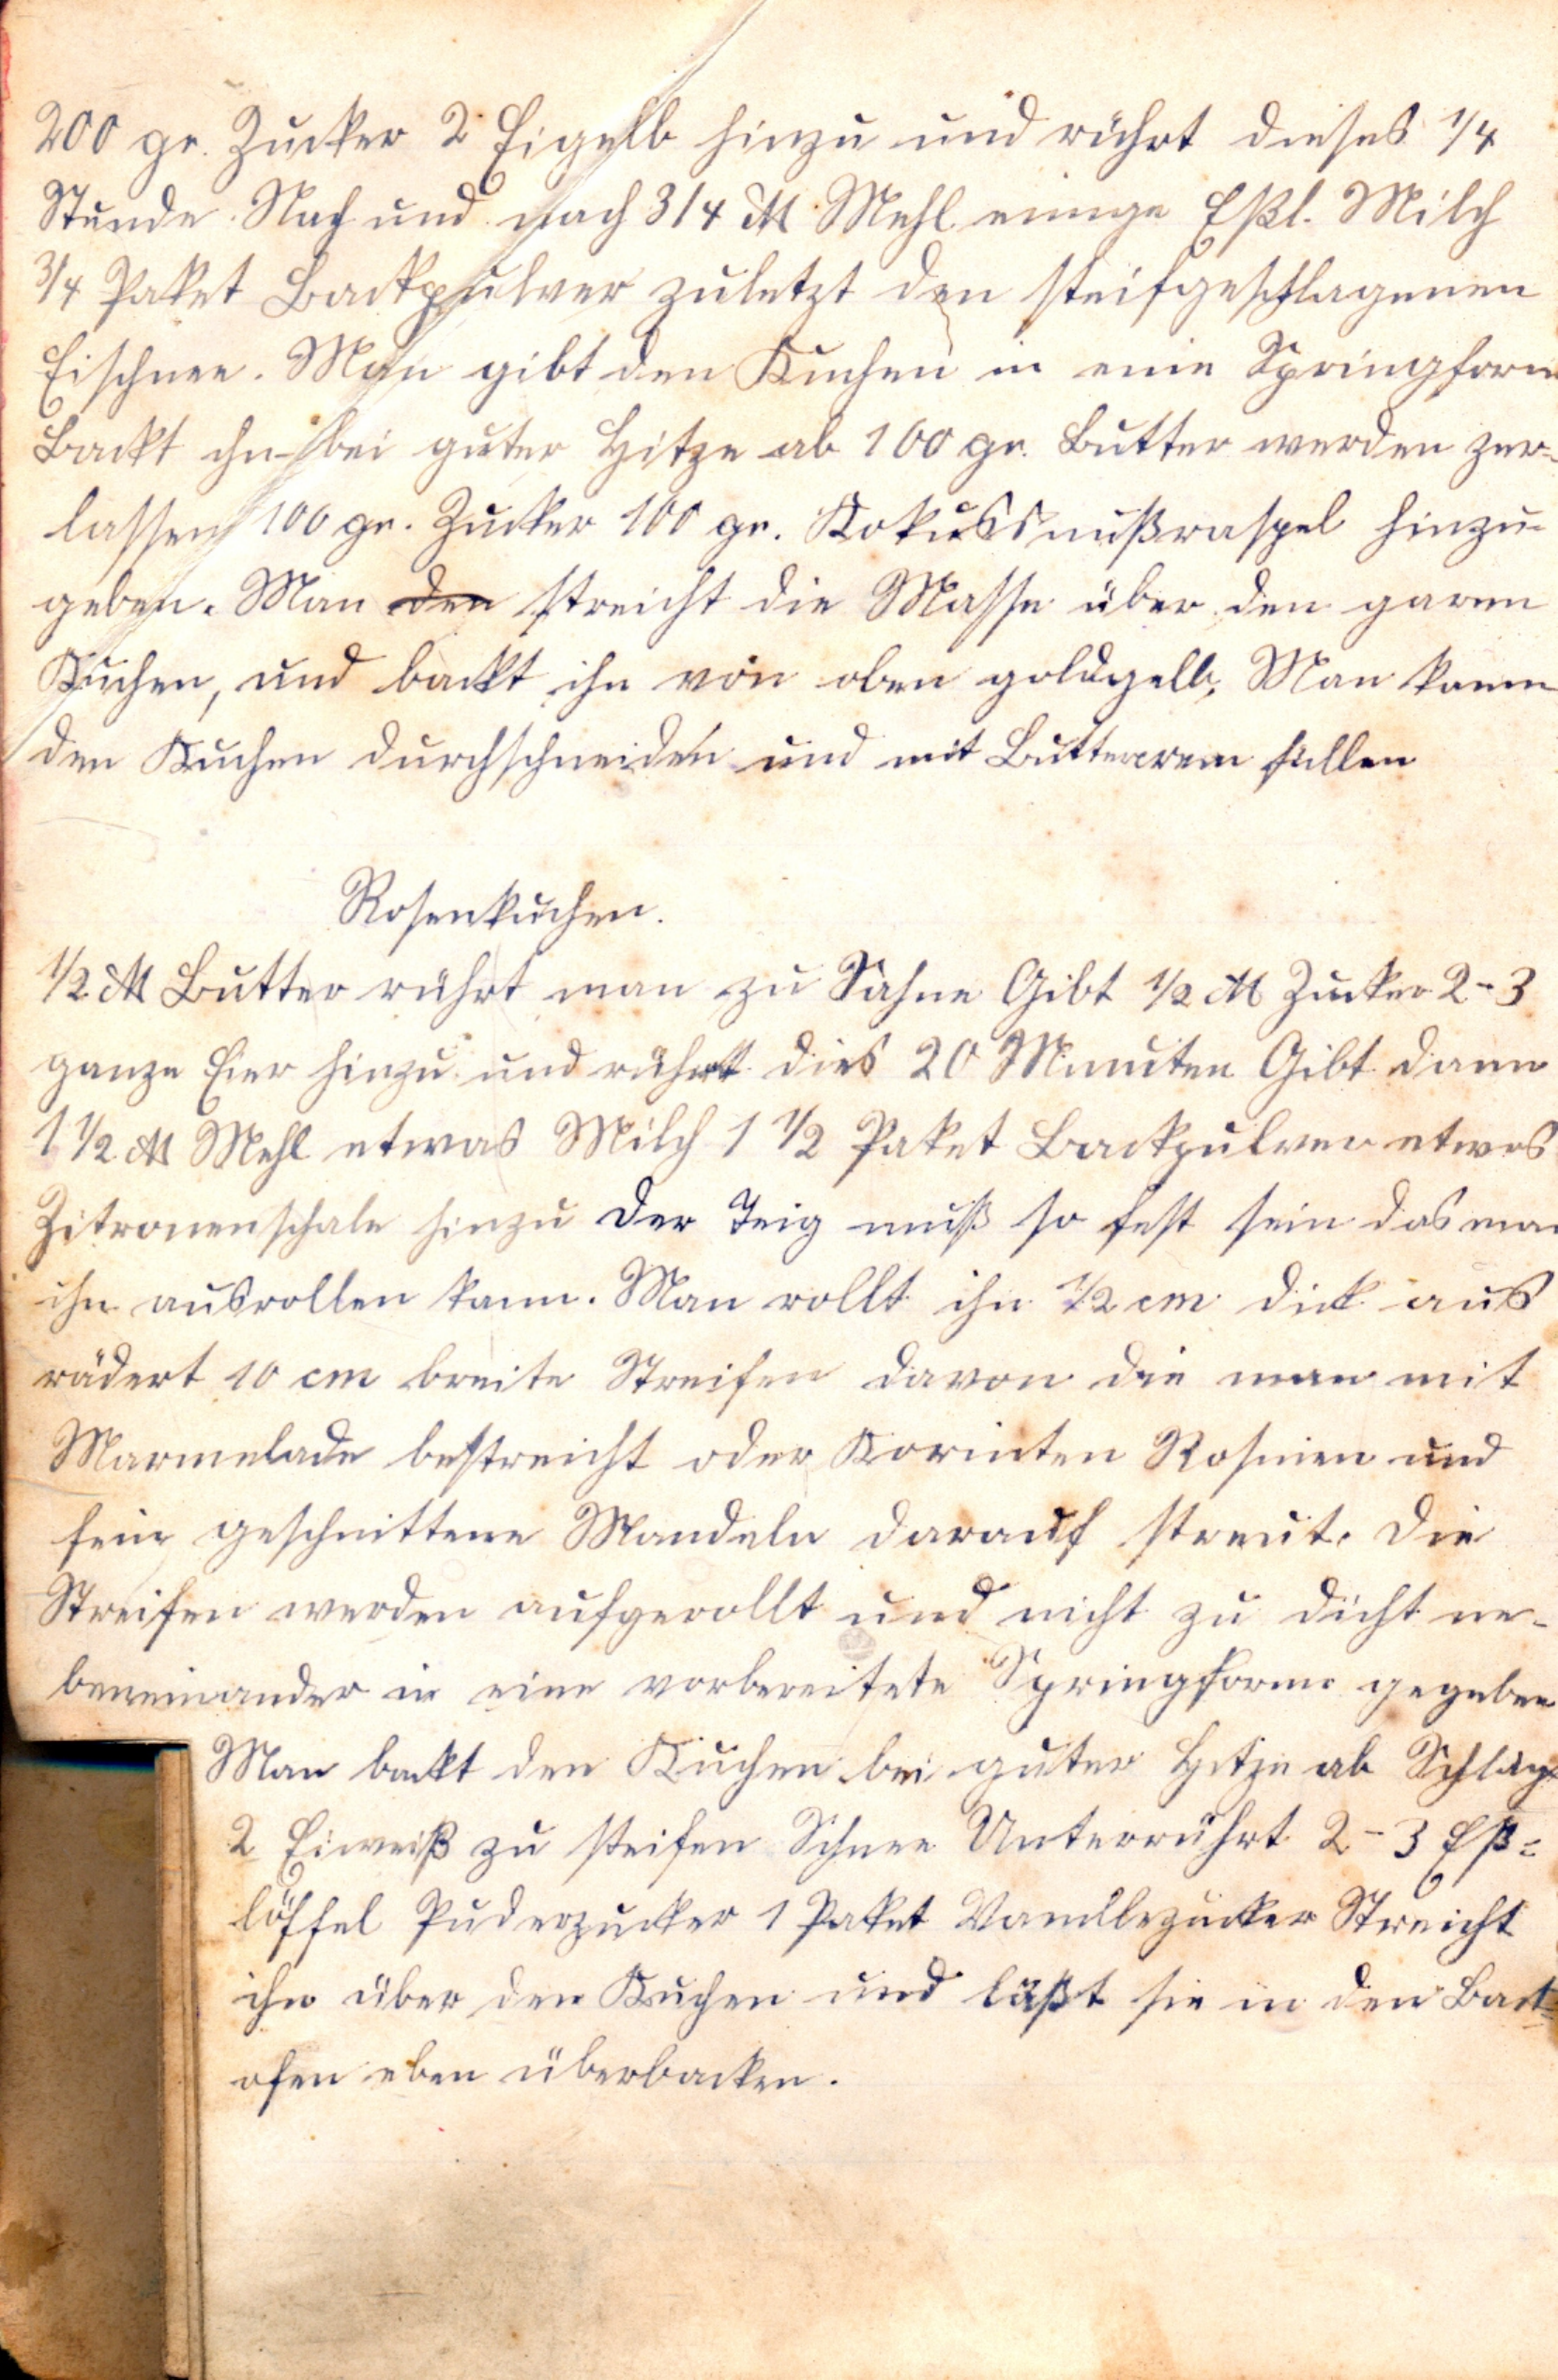 200 gr. Zucker 2 Eigelb hinzu und rührt dieses 1/4
Stunde. Nach und nach 3/4 ℔ Mehl einige Eßl. Milch
3/4 Paket Backpulver zuletzt den steifgeschlagenen
Eischnee. Man gibt den Kuchen in eine Springform
Backt ihn bei guter Hitze ab 100 gr. Butter werden zer-
lassen 100 gr. Zucker 100 gr. Kokussnußraspel hinzu-
geben. Man den streicht die Masse über den garen
Kuchen, und backt ihn von oben goldgelb, Man kann
den Kuchen durchschneiden und mit Buttercrem füllen
Rosenkuchen.
1/2 ℔ Butter rührt man zu Sahne Gibt 1/2 ℔ Zucker 2-3
ganze Eier hinzu und rührt dies 20 Minuten Gibt dann
1 1/2 ℔ Mehl etwas Milch 1 1/2 Paket Backpulver etwas
Zitronenschale hinzu Der Teig muß so fest sein das man
ihn ausrollen kann. Man rollt ihn 1/2 cm dick aus
rädert 10 cm breite Streifen davon die man mit
Marmelade bestreicht oder Korinten Rosinen und
fein geschnittene Mandeln darauf streut. Die
Streifen werden aufgerollt und nicht zu dicht ne-
beneinander in eine vorbereitete Springform gegeben
Man backt den Kuchen bei guter Hitze ab Schlägt
2 Eiweiß zu steifen Schnee Unterrührt 2-3 Eß=
löffel Puderzucker 1 Paket Vanillezucker Streicht
ihn über den Kuchen und läßt sie in den Back=
ofen eben überbacken.